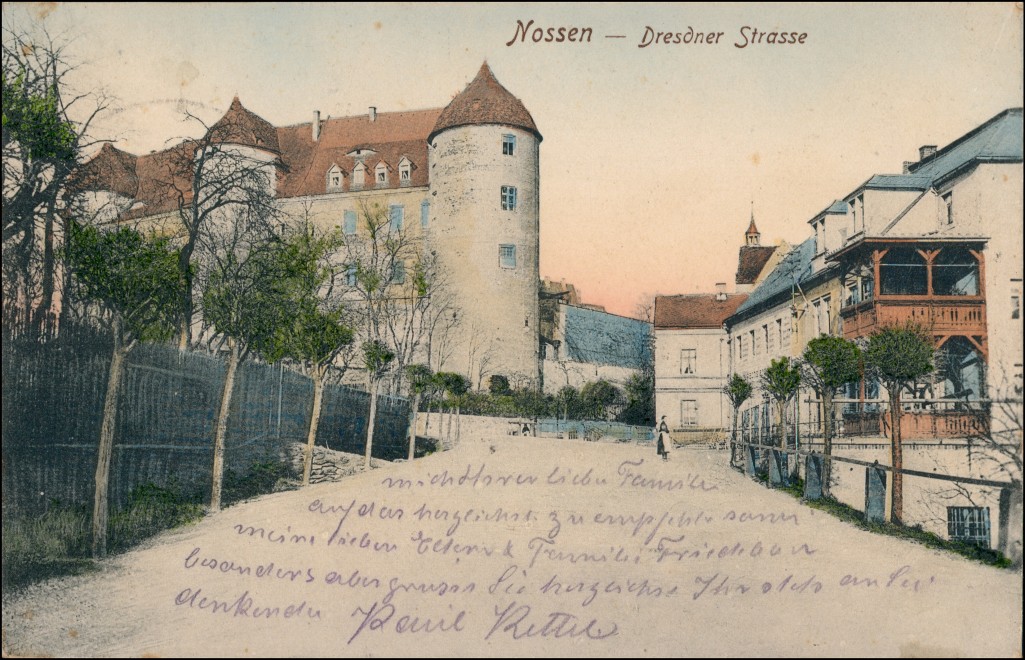 Nossen — Dresdner Strasse
mich Ihrer lieben Familie
auf das herzlichst zu empfehlen samt
meine lieben Eltern & Familie
besonders aber grüsst Sie herzlichst Ihr stets an Sie
denkender Paul Kettel